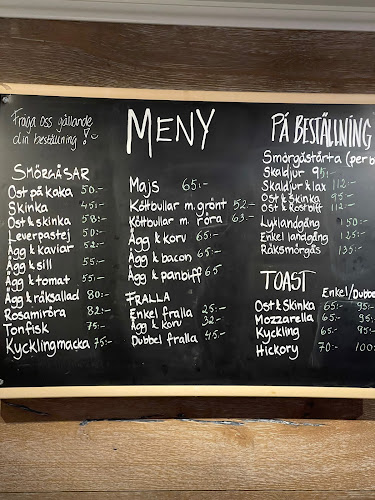 Fråga oss gällande
din beställning!
SMÖRGÅSAR
Ost på kaka 50:-
Skinka 45:-
Ost & skinka 58:-
Leverpastej 50:-
Ägg & kaviar 52:-
Ägg & sill 55:-
Ägg & tomat 55:-
Ägg & räksallad 80:-
Rosamiröra 82:-
Tonfisk 75:-
Kycklingmacka 75:-
MENY
Majs 65:-
Köttbullar m. grönt 52:-
Köttbullar m. röra 63:-
Ägg & korv 65:-
Ägg & bacon 65:-
Ägg & panbiff 65
FRALLA
Enkel fralla 25:-
Ägg & korv 32:-
Dubbel fralla 45:-
PÅ BESTÄLLNING
Smörgåstårta (per b
Skaldjur 95:-
Skaldjur & lax 112:-
Ost & Skinka 95:-
Ost & rostbiff 112:-
Lyxlandgång 150:-
Enkel landgång 125:-
Räksmörgås 135:-
TOAST Enkel/Dubbe
Ost & Skinka 65:- 95:-
Mozzarella 65:- 95:-
Kyckling 65:- 95:-
Hickory 70:- 100: